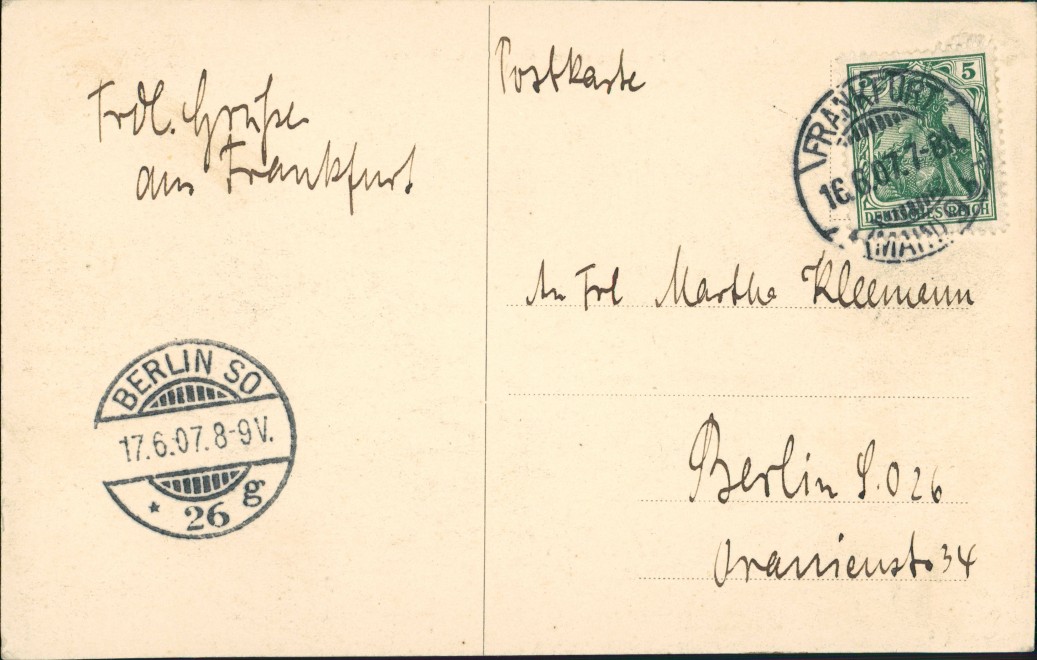 Frdl. Grüße
aus Frankfurt
Postkarte
5
DEUTSCHES REICH
FRANKFURT
16.6.07. 7-8N
(MAIN)
An Frl Martha Kleemann
Berlin S.O 26
Oranienstr 34
BERLIN SO
17.6.07. 8-9V.
* 26 g